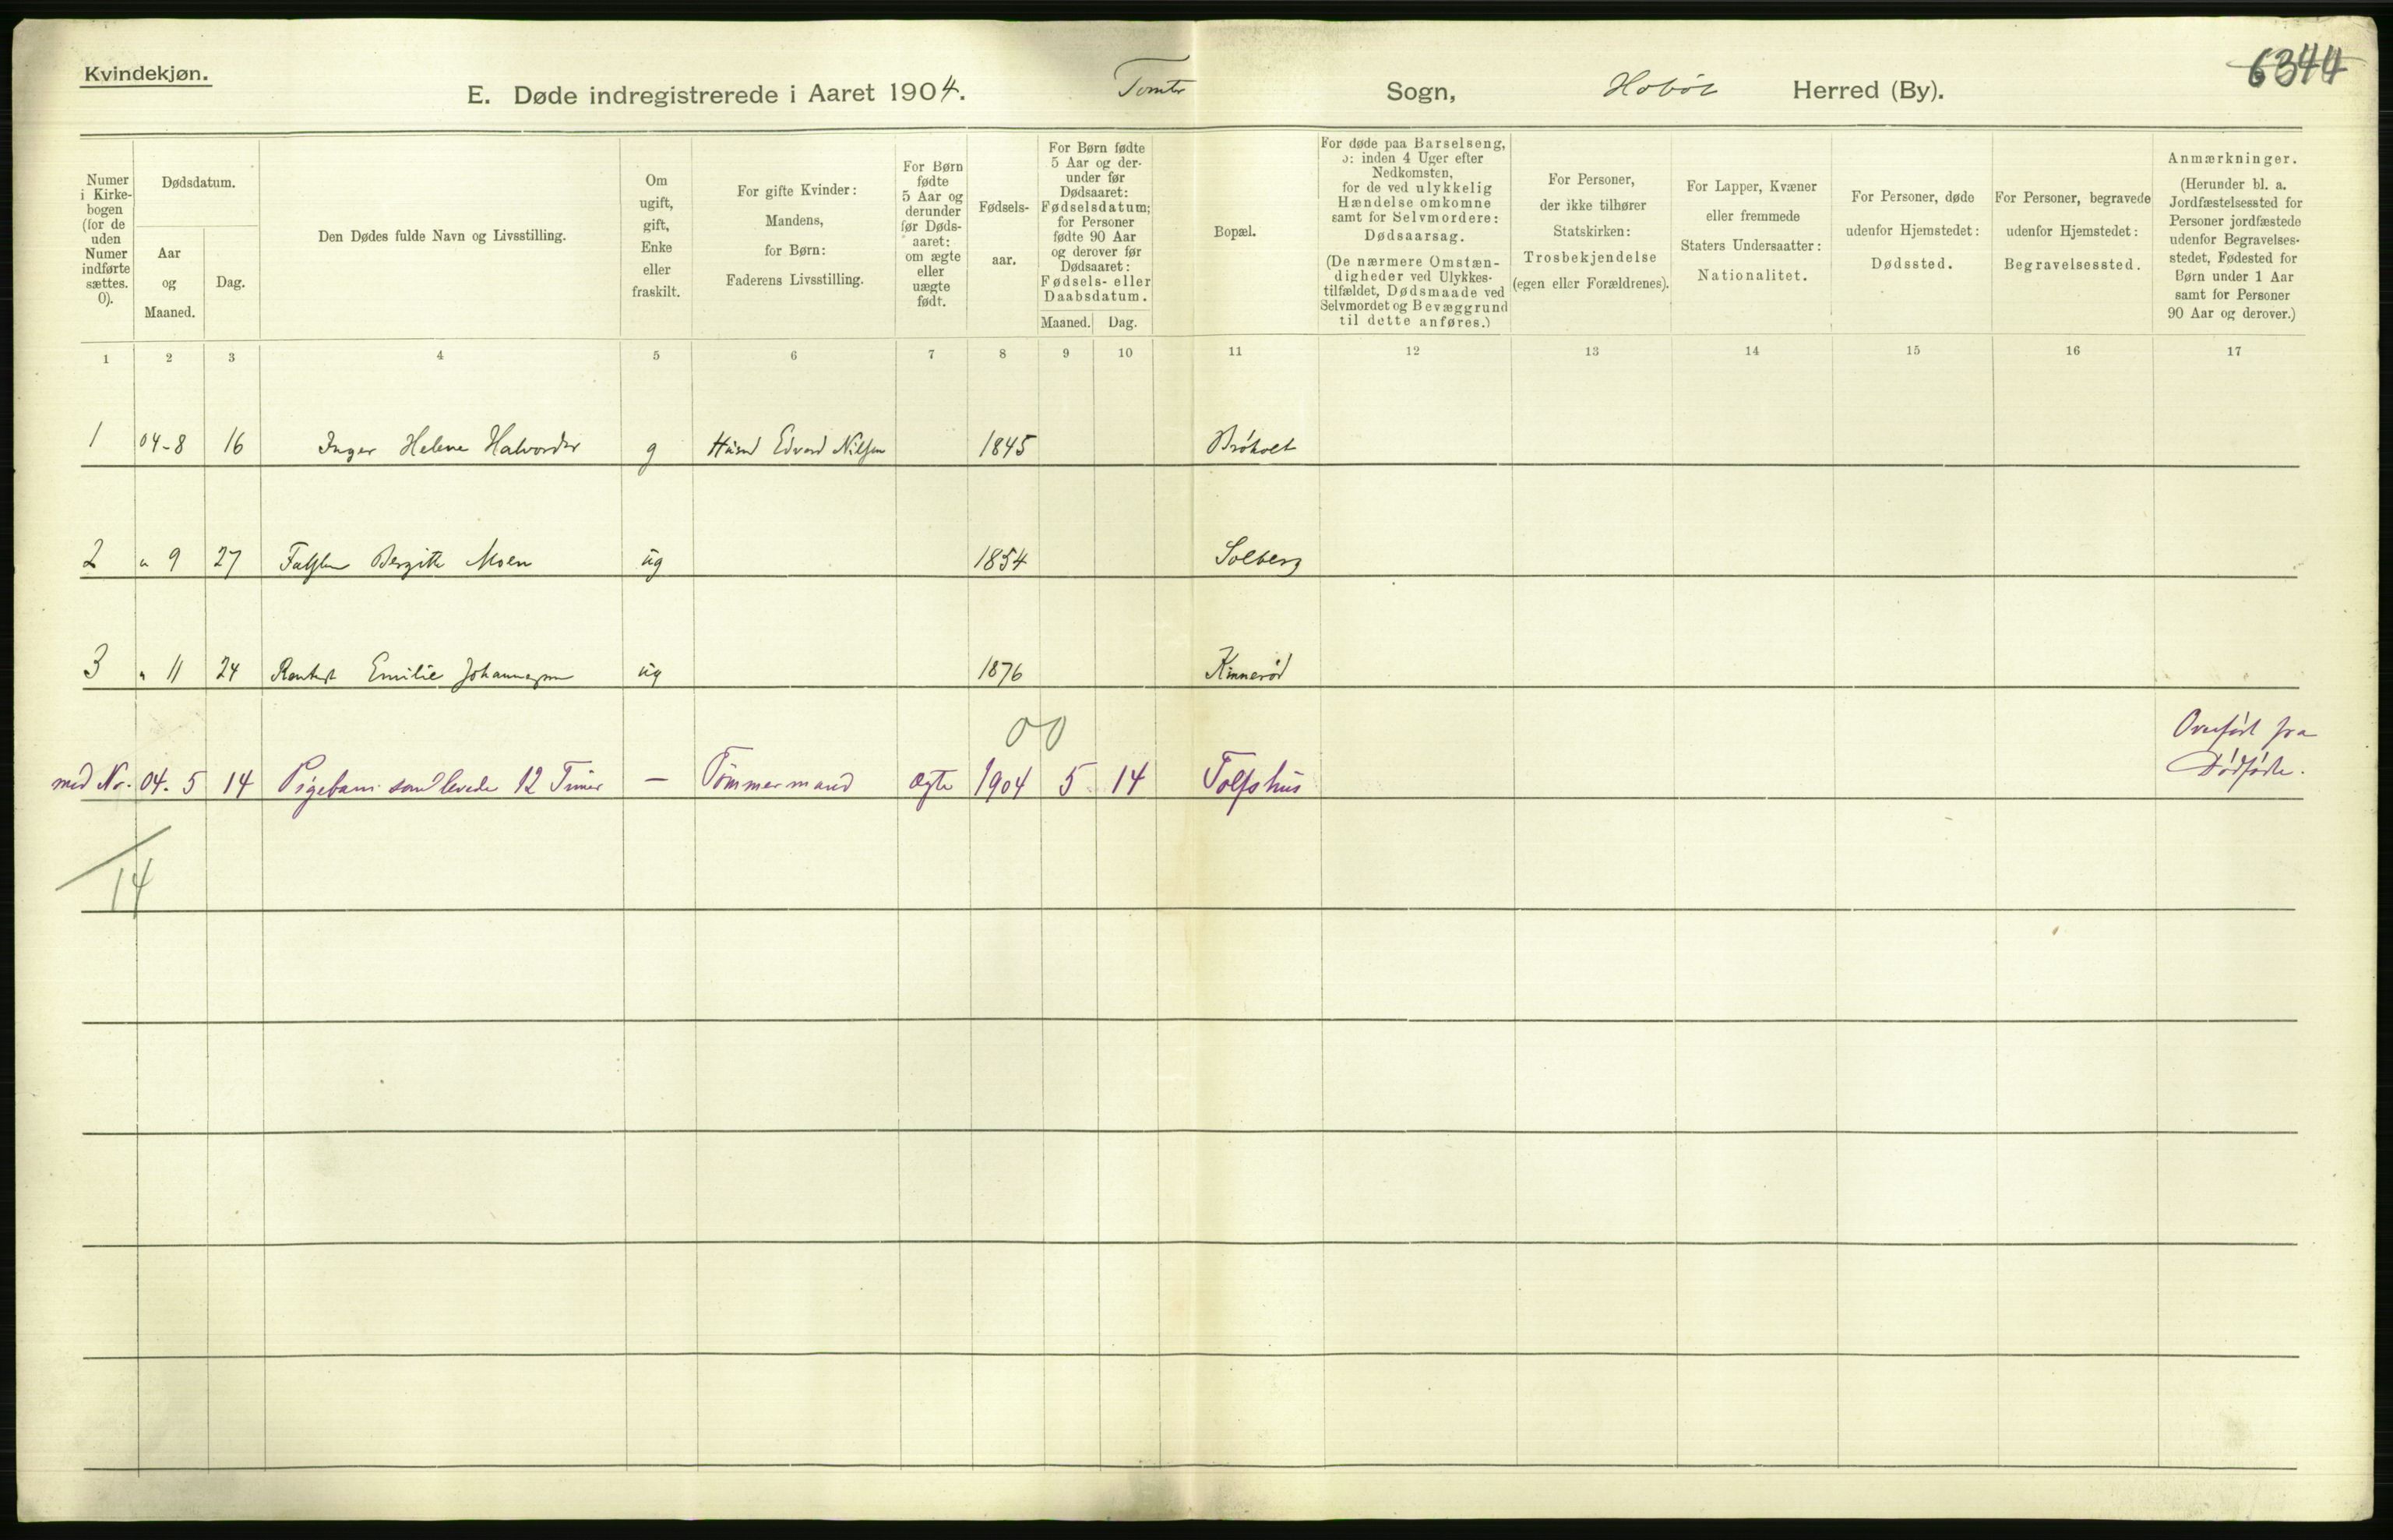 Kvindekjøn.
E. Døde indregistrerede i Aaret 1904. Tomter Sogn, Hobøl Herred (By).
6344
Numer i Kirke-bogen (for de uden Numer indførte sættes. 0).
Dødsdatum.
Aar og Maaned.
Dag.
Den Dødes fulde Navn og Livsstilling.
Om ugift, gift, Enke eller fraskilt.
For gifte Kvinder: Mandens, for Børn: Faderens Livsstilling.
For Børn fødte 5 Aar og derunder før Døds-aaret: om ægte eller uægte født.
Fødsels-aar.
For Børn fødte 5 Aar og der-under før Dødsaaret: Fødselsdatum; for Personer fødte 90 Aar og derover før Dødsaaret: Fødsels- eller Daabsdatum.
Maaned. Dag.
Bopæl.
For døde paa Barselseng, ɔ: inden 4 Uger efter Nedkomsten, for de ved ulykkelig Hændelse omkomne samt for Selvmordere: Dødsaarsag.
(De nærmere Omstæn-digheder ved Ulykkes-tilfældet, Dødsmaade ved Selvmordet og Bevæggrund til dette anføres.)
For Personer, der ikke tilhører Statskirken: Trosbekjendelse (egen eller Forældrenes).
For Lapper, Kvæner eller fremmede Staters Undersaatter: Nationalitet.
For Personer, døde udenfor Hjemstedet: Dødssted.
For Personer, begravede udenfor Hjemstedet: Begravelsessted.
Anmærkninger.
(Herunder bl. a. Jordfæstelsessted for Personer jordfæstede udenfor Begravelses-stedet, Fødested for Børn under 1 Aar samt for Personer 90 Aar og derover.)
1 2 3 4 5 6 7 8 9 10 11 12 13 14 15 16 17
1 04-8 16 Inger Helene Halvorsdtr g Husmd Edvard Nilsen 1845 Bråholt
2 " 9 27 Bergitte Moen ug 1854 Solberg
3 " 11 24 Emilie Johannesen ug 1876 Kinnerød
00
Overført fra
med Nr. 04. 5 14 Pigebarn som levede 12 Timer — Tømmermand ægte 1904 5 14 Tolfshus Dødfødte.
14